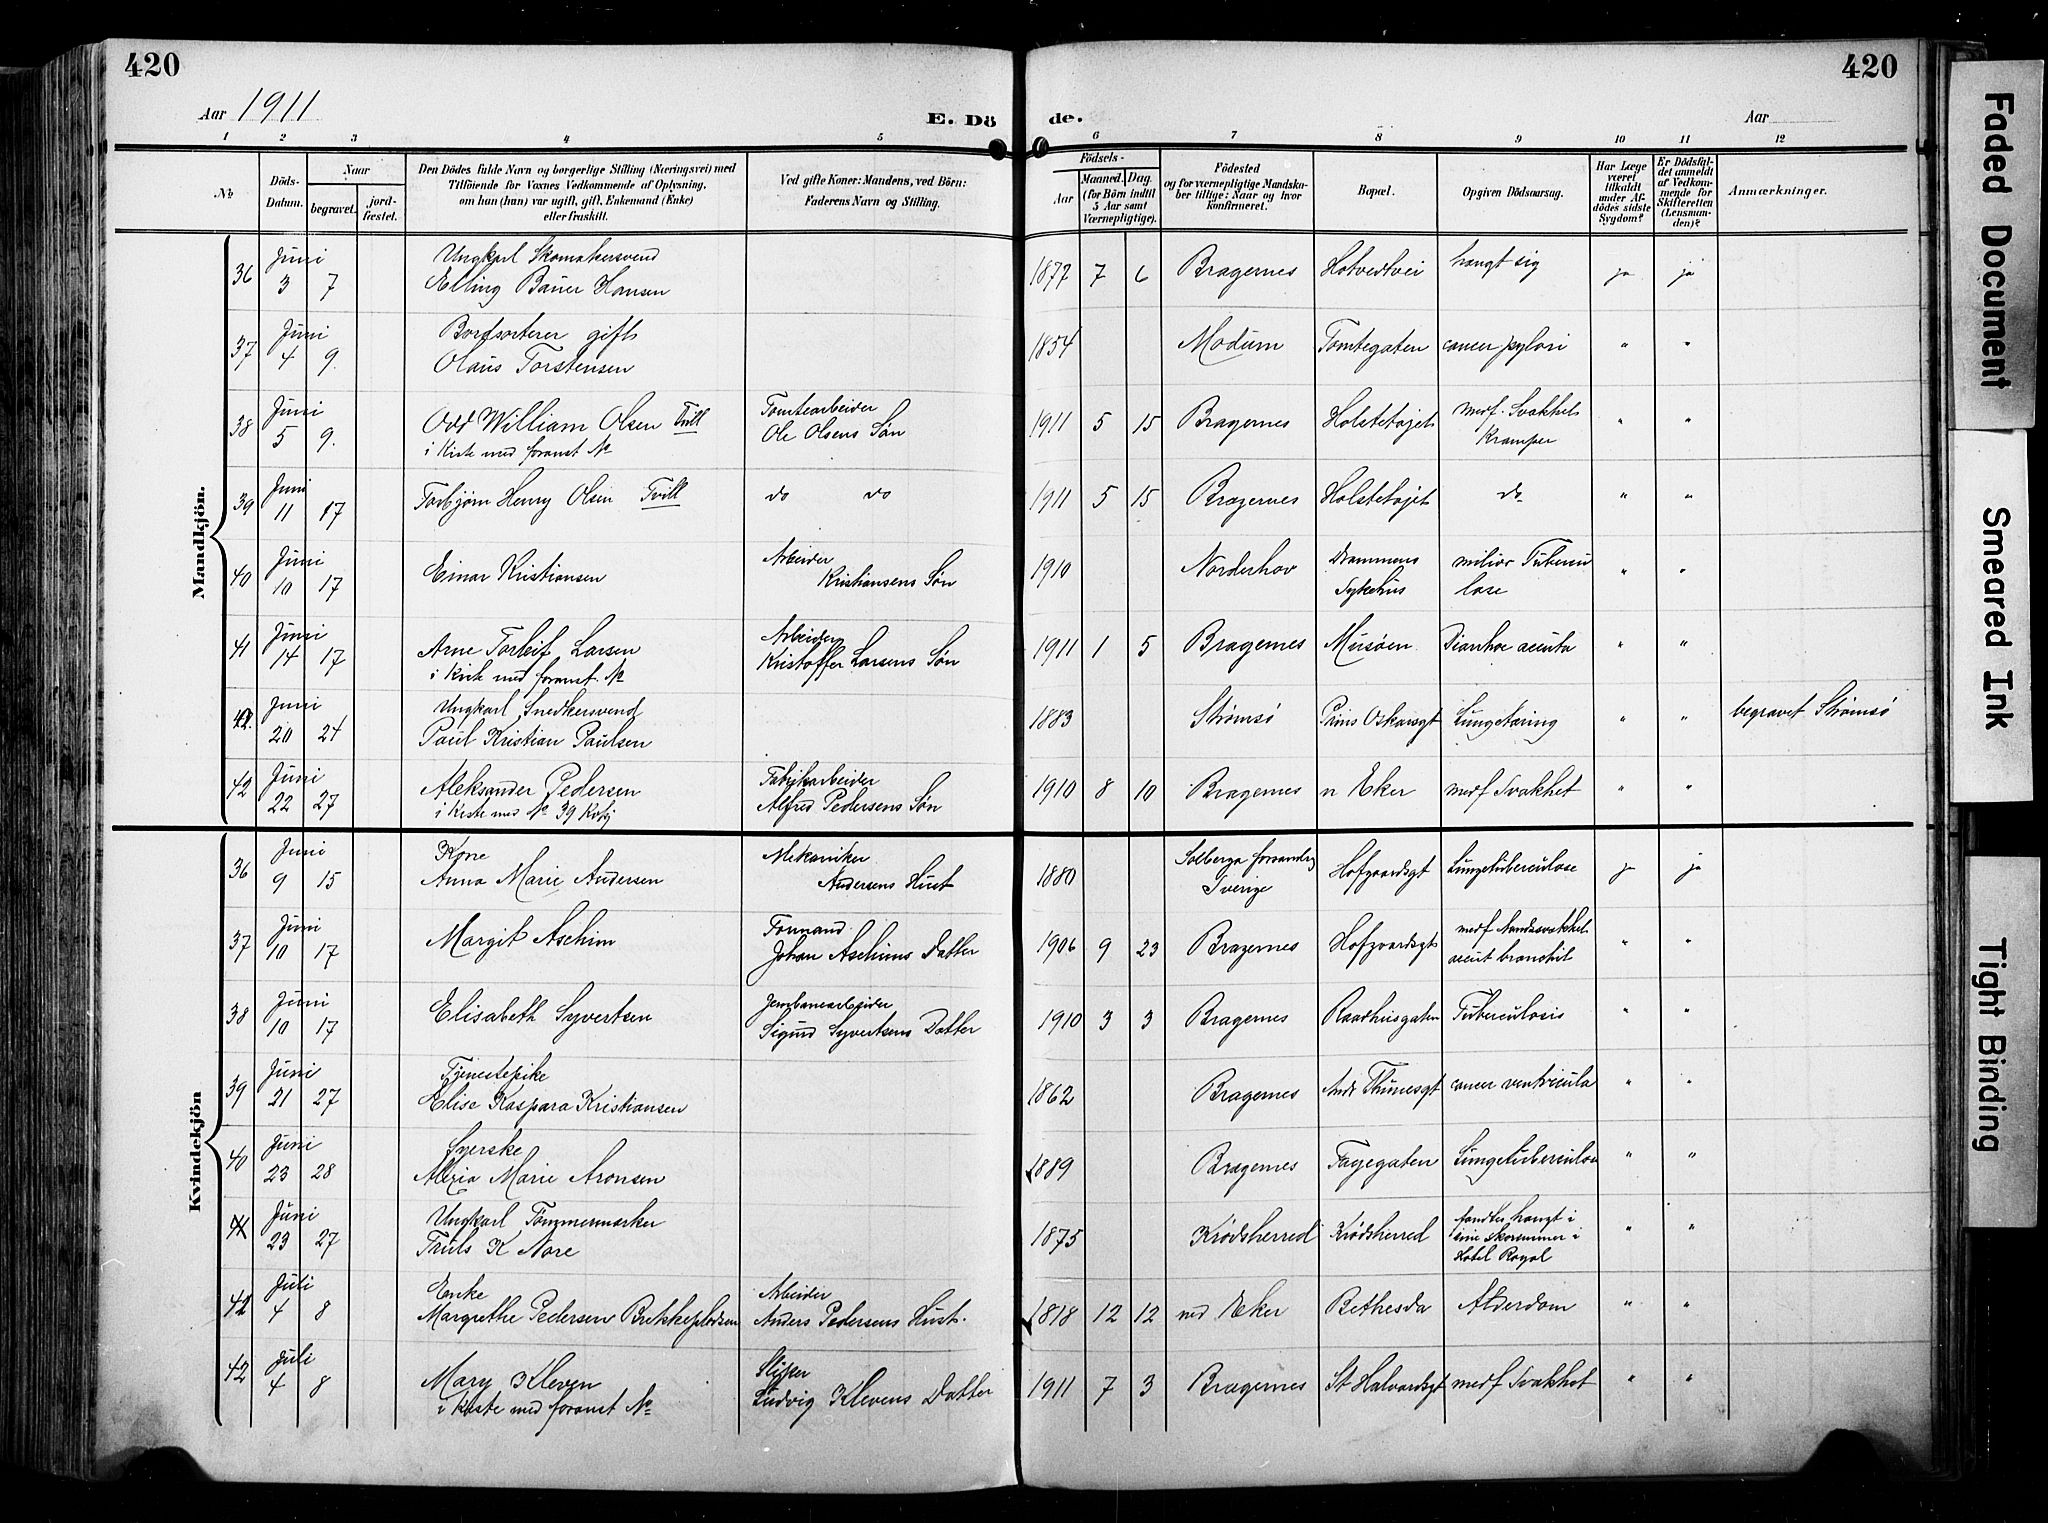 420
420
Aar 1911
E. Dö
de.
Aar
1 2 3 4 5 6 7 8 9 10 11 12
No
Döds-
Datum.
Naar
begravet.
jord-
fæstet.
Den Dödes fulde Navn og borgerlige Stilling (Næringsvei) med
Tilföiende for Voxnes Vedkommende af Oplysning,
om han (hun) var ugift, gift, Enkemand (Enke)
eller fraskilt.
Ved gifte Koner: Mandens, ved Börn:
Faderens Navn og Stilling.
Födsels-
Aar
Maaned. Dag.
(for Börn indtil
5 Aar samt
Værnepligtige).
Födested
og for værnepligtige Mandska-
ber tillige: Naar og hvor
konfirmeret.
Bopæl.
Opgiven Dödsaarsag.
Har Læge
været
tilkaldt
under Af-
dödes sidste
Sygdom?
Er Dödsfal-
det anmeldt
af Vedkom-
mende for
Skifteretten
(Lensman-
den)?
Anmærkninger.
Mandkjön.
36 Juni 3 7 Ungkarl Skomakersvend
Elling Bauer Hansen 1877 7 6 Bragernes Hotvedtvei hængt sig ja ja
37 Juni 4 9. Bordsorterer gift
Olaus Torstensen 1854 Modum Tomtegaten cancer pylori " "
38 Juni 5 9. Odd William Olsen Tvill
i Kiste med foranst No
Tomtearbeider
Ole Olsens Søn 1911 5 15 Bragernes Holstetøjet medf. Svakhet
Kramper " "
39 Juni 11 17 Torbjørn Henry Olsen Tvill do do 1911 5 15 Bragernes Holstetøjet do " "
40 Juni 10 17 Einar Kristiansen Arbeider
Kristiansens Søn 1910 Norderhov Drammens
Sykehus miliær Tubercu
lose " "
41 Juni 14 17 Arne Torleif Larsen
i Kiste med foranst. No
Arbeider
Kristoffer Larsens Søn 1911 1 5 Bragernes Musøen Diarrhoe acuta " "
Juni 20 24 Ungkarl, Snedkersvend
Paul Kristian Paulsen 1883 Strømsø Prins Oskarsgt Lungetæring " " begravet Strømsø
42 Juni 22 27 Aleksander Pedersen
i Kiste med No 39 Kvkj
Fabrikarbeider
Alfred Pedersens Søn 1910 8 10 Bragernes n Eker medf Svakhet " "
Kvindekjön
36 Juni 9 15 Kone
Anna Marie Andersen Mekaniker
Andersens Hust 1880 Solberga
Sverige Hofgaardsgt Lungetuberculose ja ja
37 Juni 10 17 Margit Aschim Formand
Johan Aschims Datter 1906 9 23 Bragernes Hofgaardsgt medf Aandssvakhet
acut bronchit " "
38 Juni 10 17 Elisabeth Syvertsen Jernbanearbeider
Sigurd Syvertsens Datter 1910 3 3 Bragernes Raadhusgaten Tuberculosis " "
39 Juni 21 27 Tjenestepike
Elise Kaspara Kristiansen 1862 Bragernes And. Thunesgt cancer ventricula " "
40 Juni 23 28 Syerske
Alexia Marie Aronsen 1889 Bragernes Fagegaten Lungetuberculose " "
41 Juni 23 27 Ungkarl Tømmermerker
Truls K Nore 1875 Krødsherred Krødsherred fandtes hængt i
sine
Hotel Royal " "
41 Juli 4 8 Enke
Margrethe Pedersen Arbeider
Anders Pedersens Hust. 1818 12 12 ned Eker Bethesda Alderdom " "
42 Juli 4 8 Mary Kleven
i Kiste med foranst No
Sliper
Ludvig Klevens Datter 1911 7 3 Bragernes St Halvardsgt medf Svakhet " "
Faded Document
Smeared Ink
Tight Binding